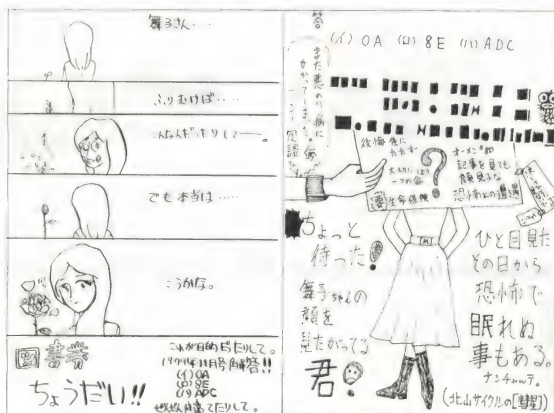 舞子さん・・・
ふりむけば・・・・
こんなんだったりして――。
でも本当は・・・・・
こうかな。
図書券
ちょうだい!!
これが目的だったりして。
1979年11月号解答!!
(イ) OA
(ロ) 8E
(ハ) ADC
答
(イ) OA (ロ) 8E (ハ) ADC
また悪のり病に
かかってしまった。
後悔先に
立たず…
大切にしよう
一つの命
生命保険
?
オーメン
記事を見ても
顔見るな
恐怖の
ちょっと
待った!
舞子ちゃんの
顔を
見たがってる
君!
ひと目見た
その日から
恐怖で
眠れぬ
事もある。
ナンチャッテ。
(北山サイクルの[彗星])